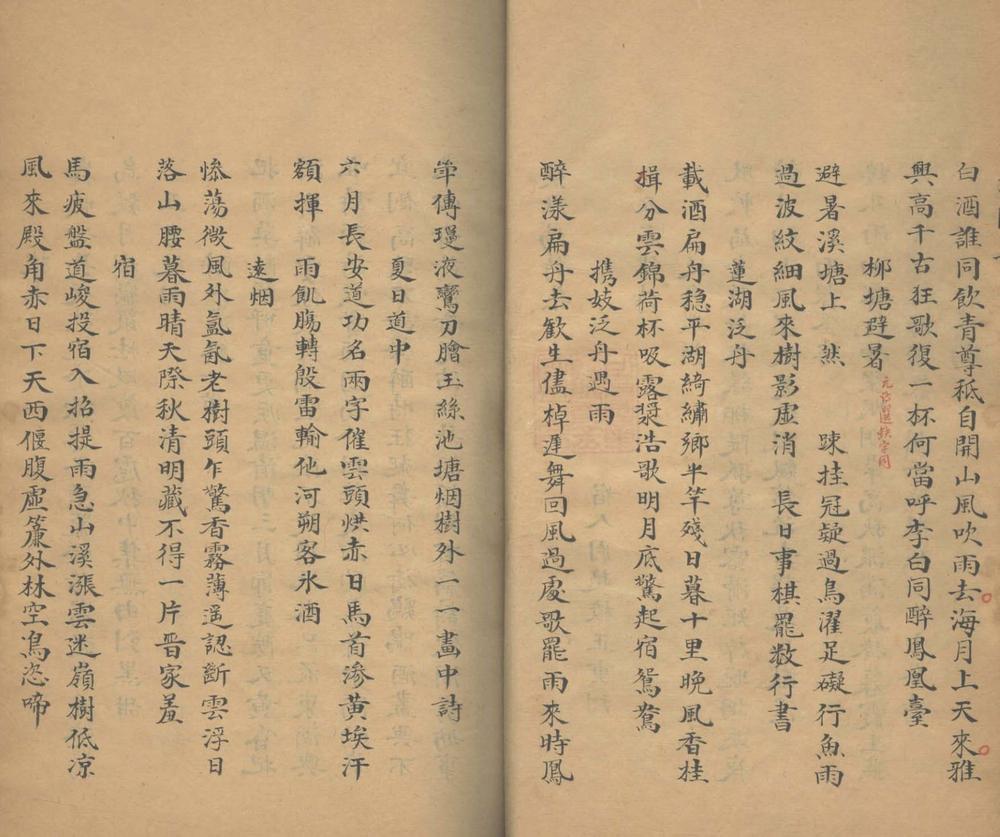 白酒誰同飲青尊秪自開山風吹雨去海月上天來雅
興高千古狂歌復一杯何當呼李白同醉鳳凰臺
柳塘避暑
避暑溪塘上 然 踈挂冠疑過鳥濯足礙行魚雨
過波紋細風來樹影虛消 長日事棋罷敉行書
蓮湖泛舟
載酒扁舟稳平湖綺繡鄉半竿殘日暮十里晚風香桂
揖分雲錦荷杯吸露漿浩歌明月底驚起宿鴛鴦
携妓泛舟遇雨
醉漾扁舟去歓生儘棹遲舞回風過處歌罷雨來時鳳
傳瓊液鸞刀膾玉絲池塘烟樹外一一畫中詩
夏日道中
六月長安道功名兩字催雲頭烘赤日馬首滲黃埃汗
額揮雨飢腸轉殷雷輸他河朔客氷酒
遠烟
慘蕩微風外氤氳老樹頭乍驚香霧薄遥認断雲浮日
落山腰暮雨晴天際秋清明藏不得一片晋家羞
宿
馬疲盤道峻投宿入招提雨急山溪漲雲迷嶺樹低凉
風來殿角赤日下天西偃腹虛簾外林空鳥恣啼